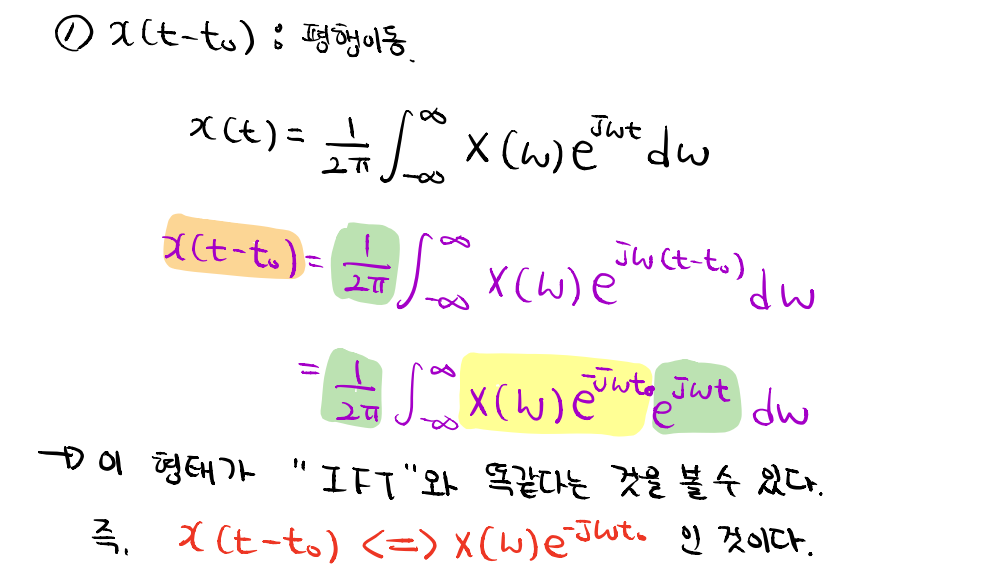 ① x(t-t₀) : 평행이동.
x(t) = 1/2π ∫_{-∞}^{∞} X(w)e^{jwt}dw
x(t-t₀) = 1/2π ∫_{-∞}^{∞} X(w)e^{jw(t-t₀)}dw
= 1/2π ∫_{-∞}^{∞} X(w)e^{-jwt₀}e^{jwt}dw
→ 이 형태가 "IFT"와 똑같다는 것을 볼 수 있다.
즉, x(t-t₀) <=> X(w)e^{-jwt₀} 인 것이다.